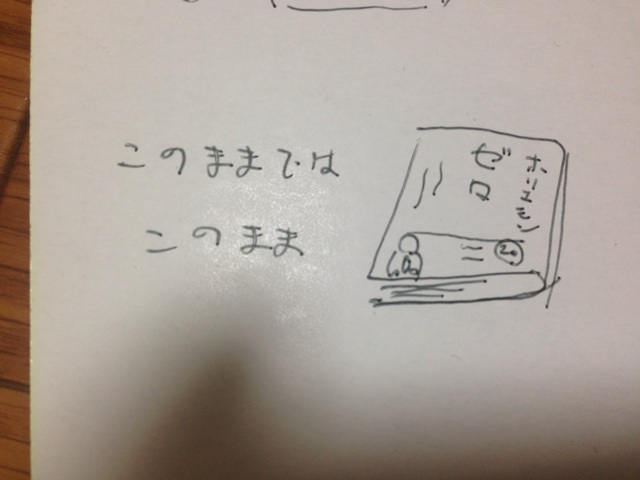 このままでは
このまま
ホリエモン
ゼロ